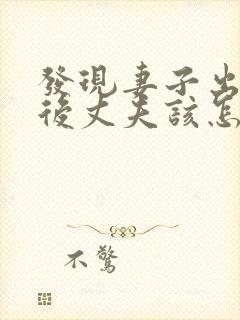 發現妻子出
後丈夫該怎
不驚